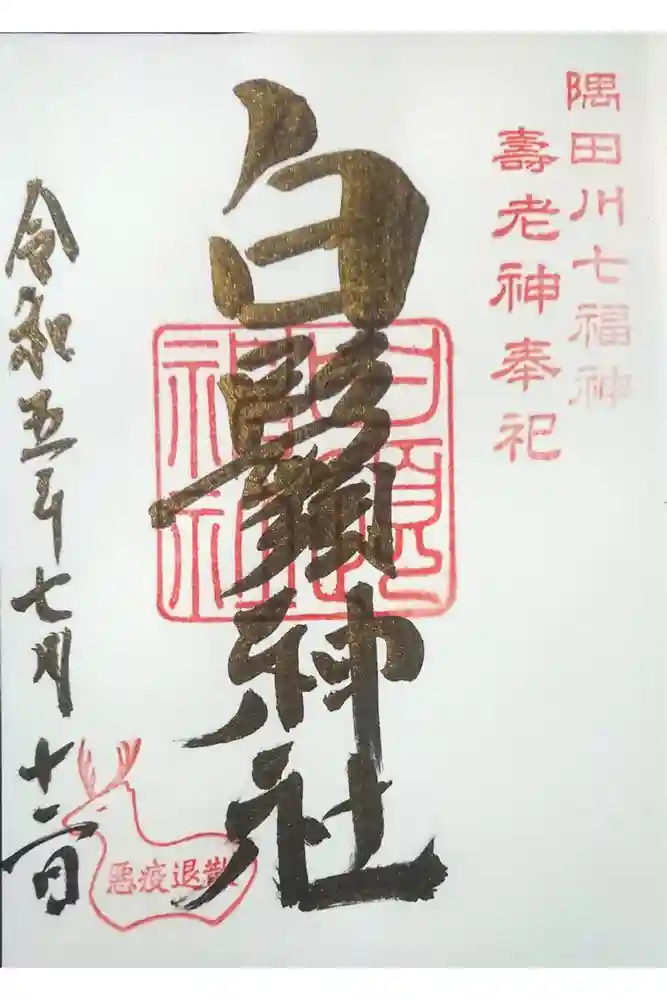 隅田川七福神
壽老神奉祀
白鬚神社
令和五年七月十二日
悪疫退散